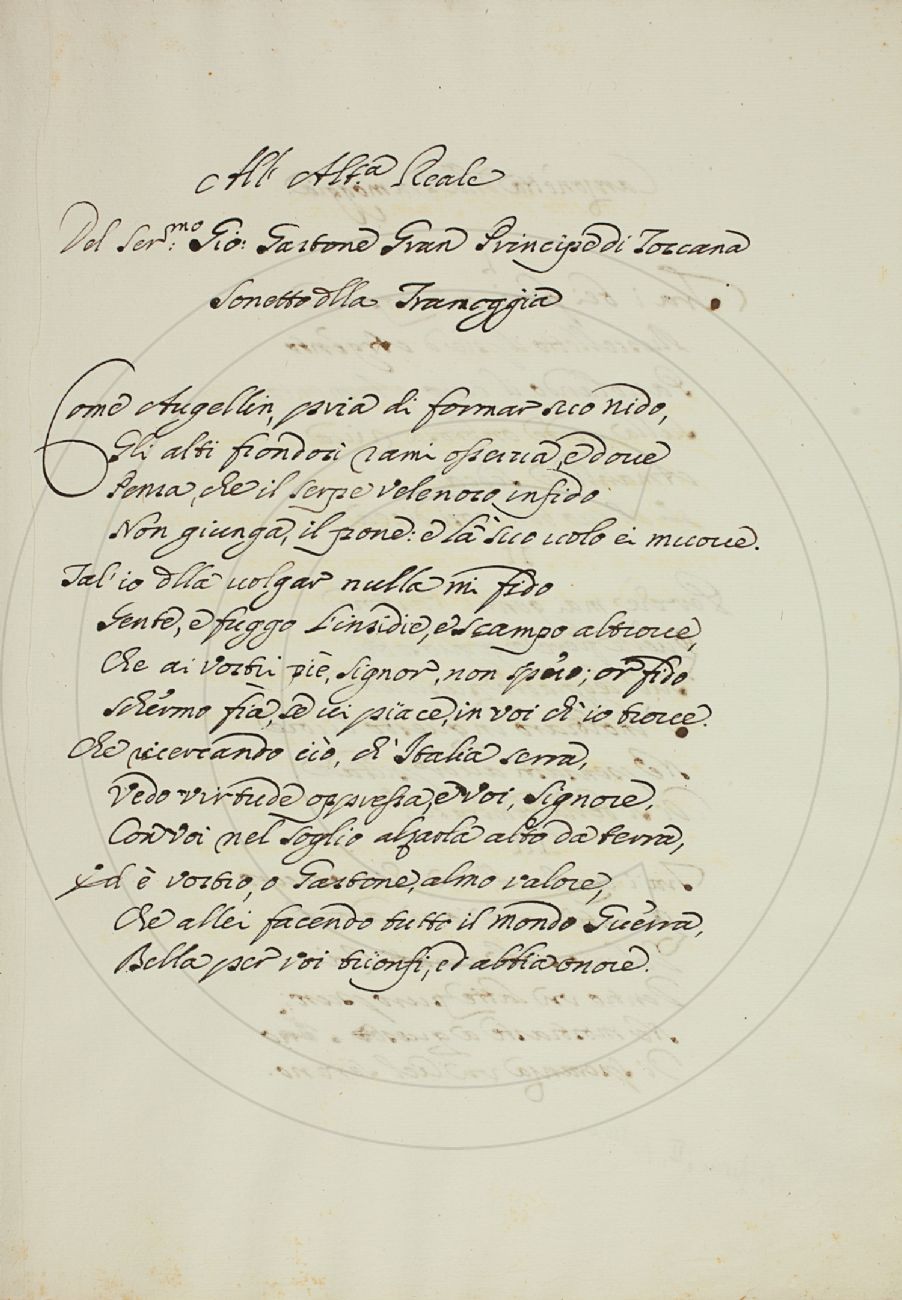 All' Alt.za Reale
Del Ser.mo Gio: Gastone Gran Principe di Toscana
Sonetto dlla Tramoggia
Come Augellin, pria di formar suo Nido,
Gli alti frondosi rami osserva, e dove
Pensa, che il serpe velenoso infido
Non giunga, il pone: e là suo volo ei muove.
Tal' io dlla volgar nulla mi fido
Gente, e fuggo l'insidie, e scampo altrove,
Che ai vostri piè, Signor, non spero; or fido
Schermo fia, se vi piace, in voi ch' io trove.
Che ricercando ciò, ch' Italia serra,
Vedo virtude oppressa, e voi, Signore,
Con voi nel soglio alzarla alto da terra,
Ed è vostro, o Gastone, almo valore,
Che allei facendo tutto il Mondo Guerra,
Bella per voi trionfi, ed abbia onore.